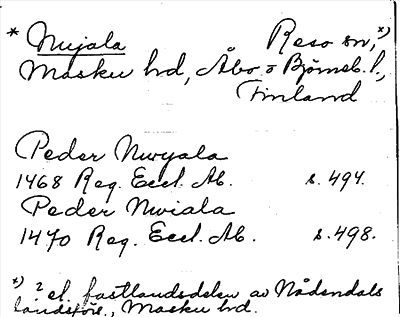 * Nujala Reso sn, *)
Masku hd, Åbo o Björneb. l.,
Finland
Peder Nwyala
1468 Reg. Eccl. Ab. s. 494.
Peder Nwiala
1470 Reg. Eccl. Ab. s. 498.
*) 2 el. fastlandsdelen av Nådendals
landsförs., Masku hd.